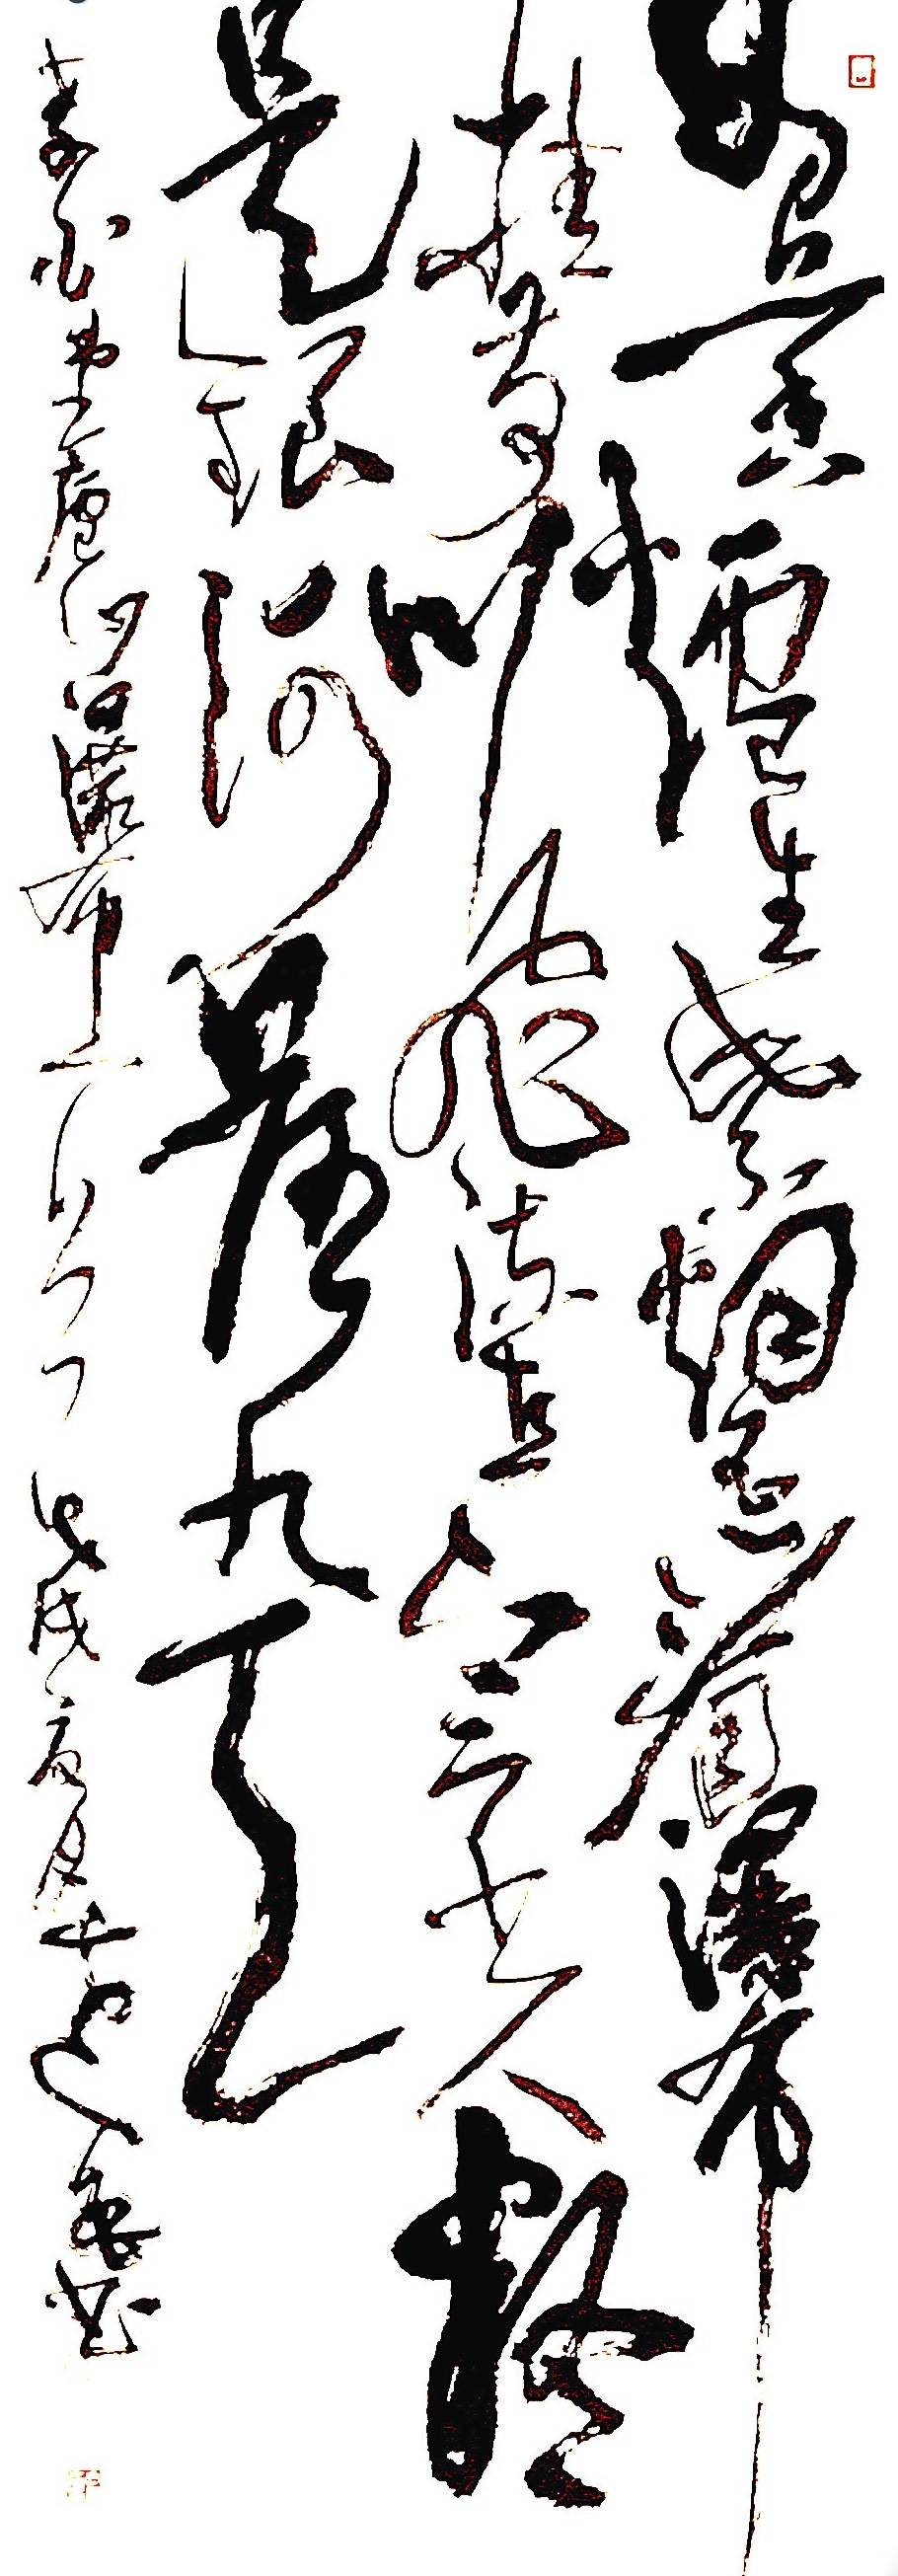 日照香爐生紫烟遥看瀑布
挂前川飛流直下三千尺疑
是銀河落九天
李白望廬山瀑布 戊戌夏月 書